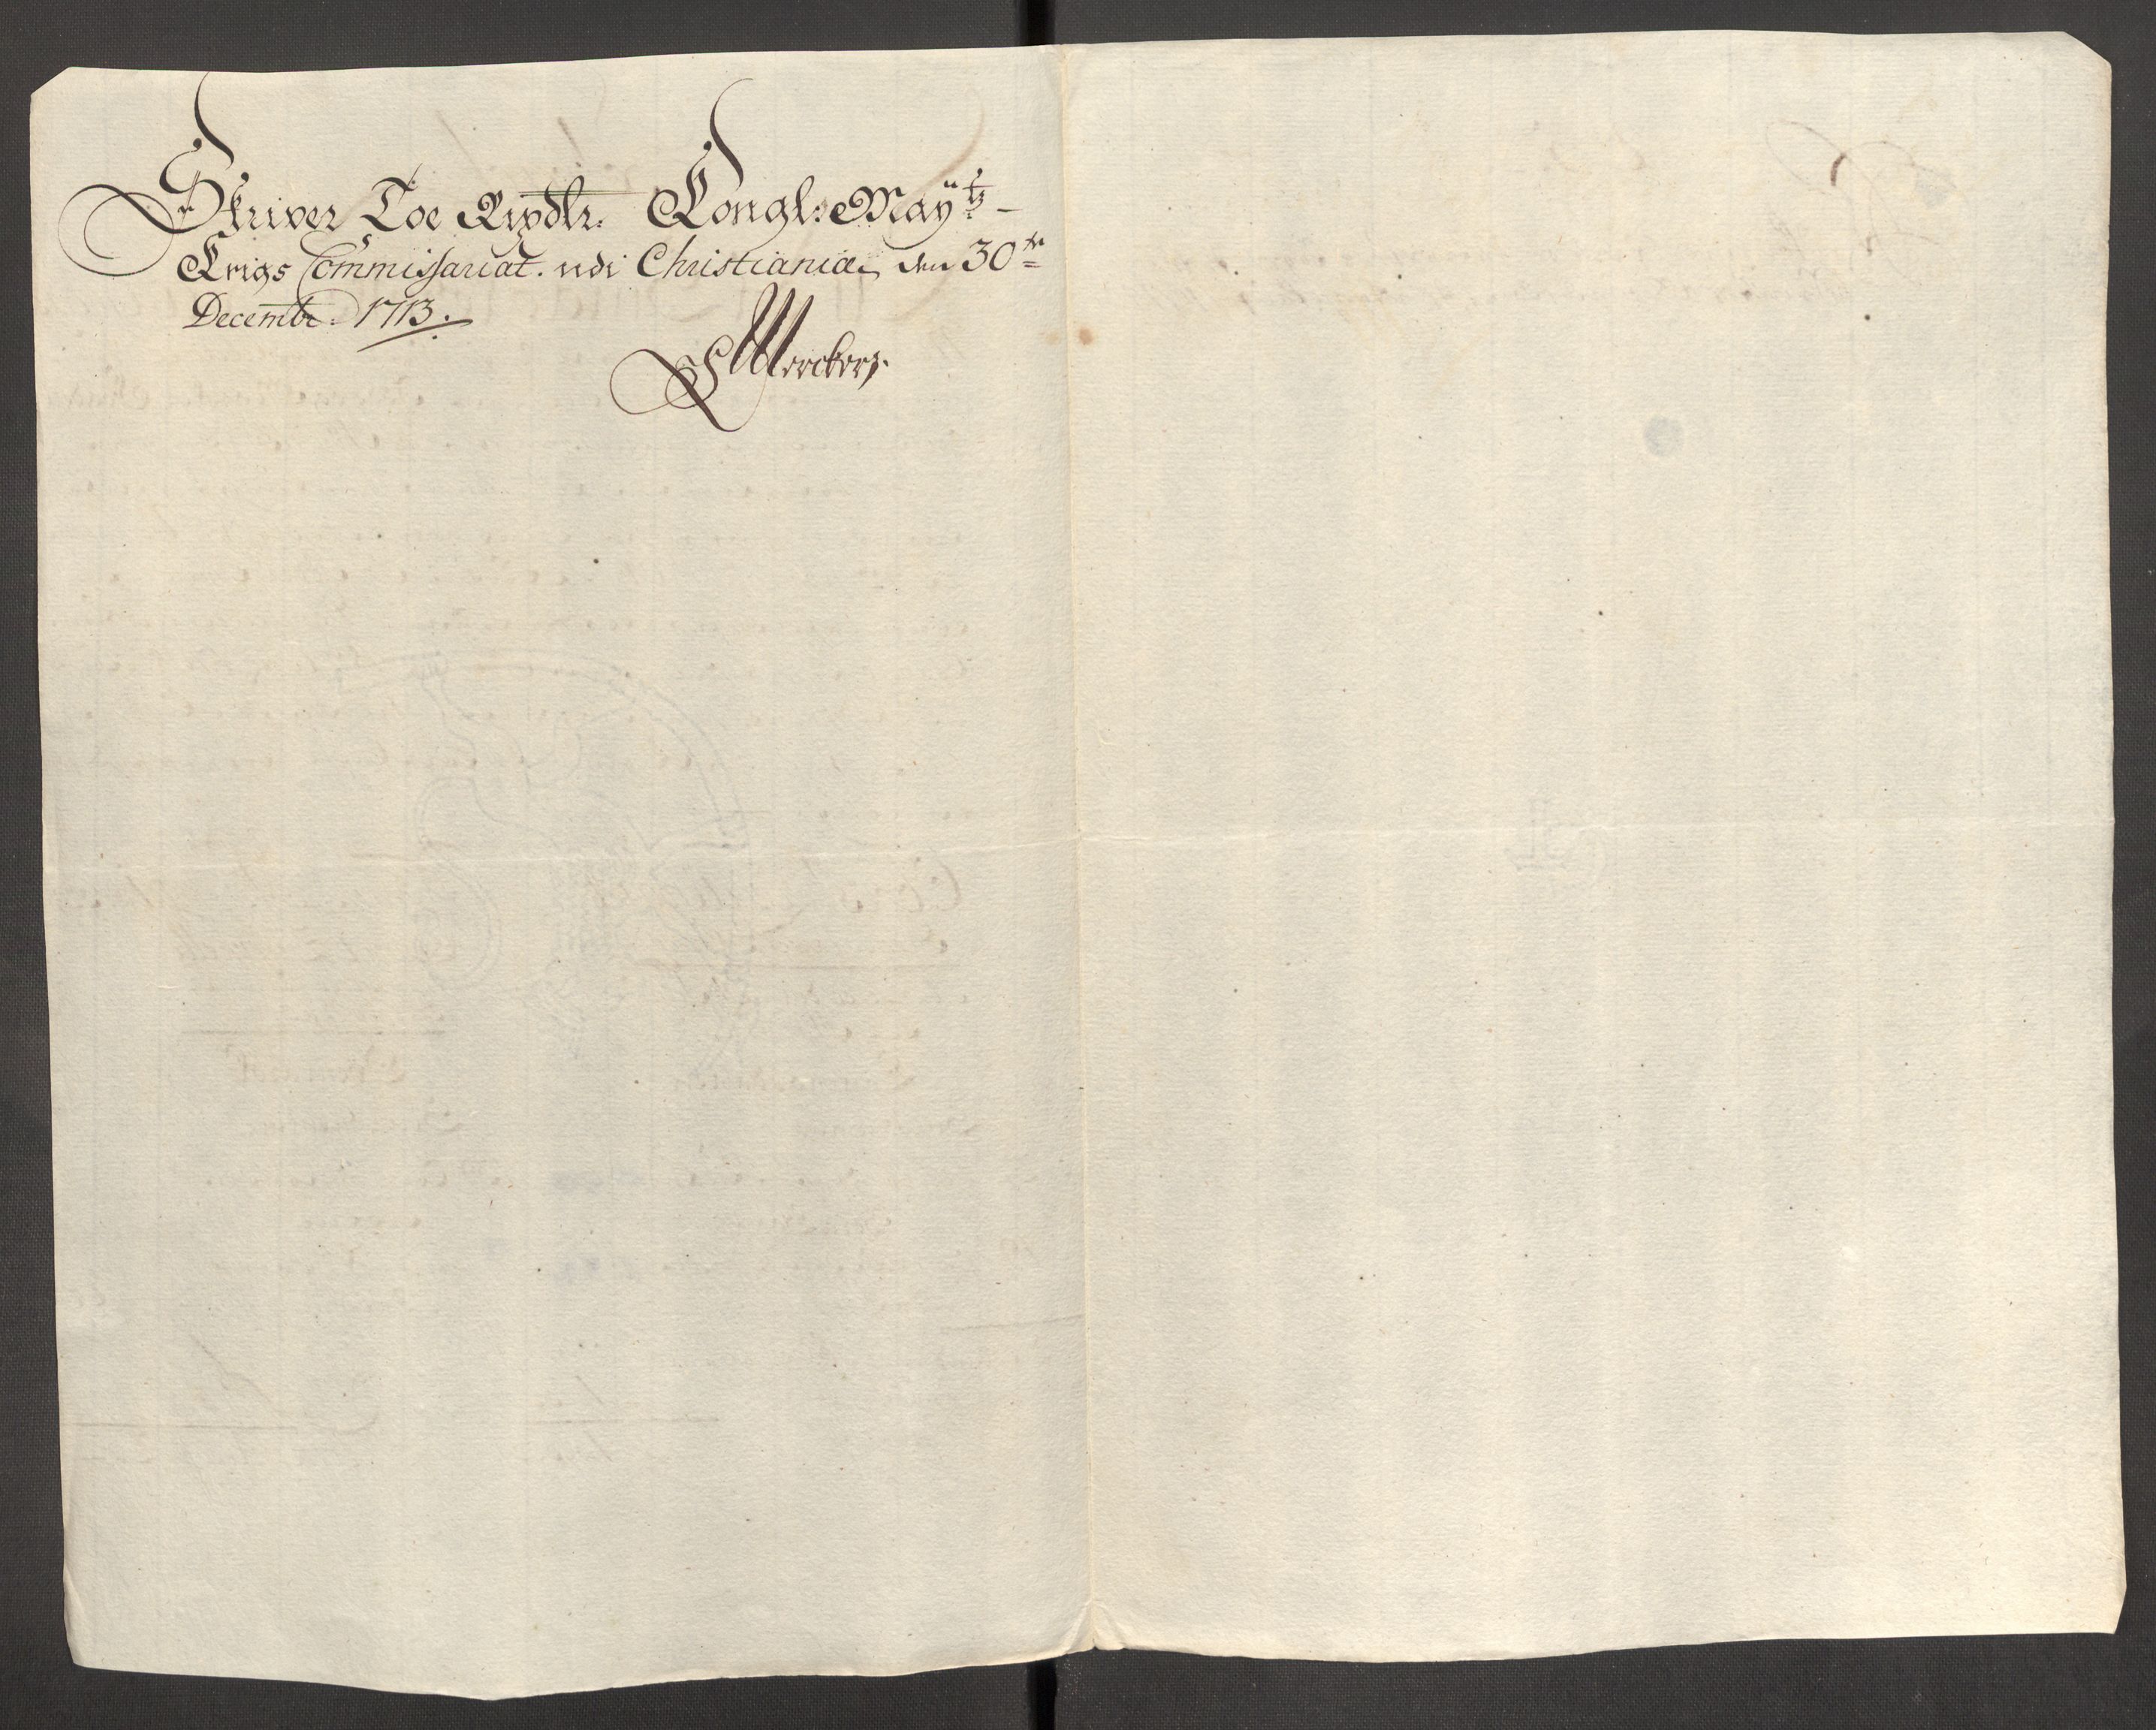 Skriver Toe Rixdlr. Kongl: Mayᵗᶻ
Krigs Commissariat. udi Christiania den 30ᵗᵉ
Decembr. 1713.